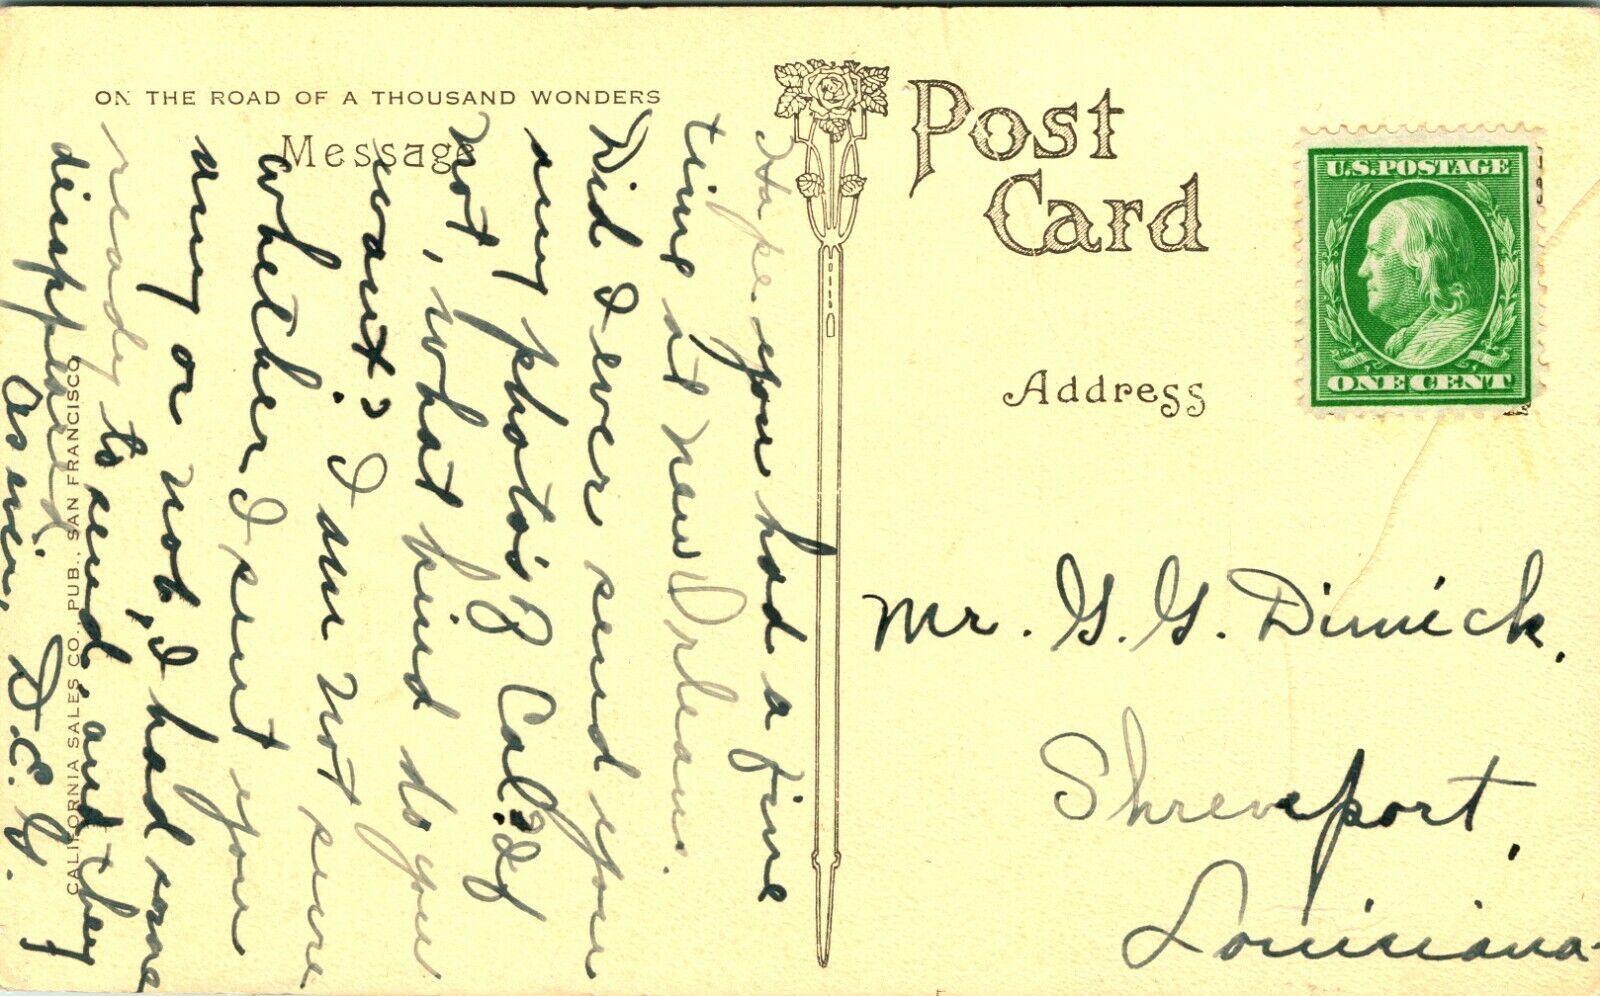 ON THE ROAD OF A THOUSAND WONDERS
Message
Post
Card
U.S. POSTAGE
ONE CENT
Address
Mr. G. G. Dimick,
Shreveport,
Louisiana.
Hope you had a fine
time at New Orleans.
Did I ever send you
any photo's of Cal.? If
not, what kind do you
want? I am not sure
whether I sent you
any or not, I had some
ready to send, and they
disappeared.
As ever, D.E.G.
CALIFORNIA SALES CO., PUB., SAN FRANCISCO